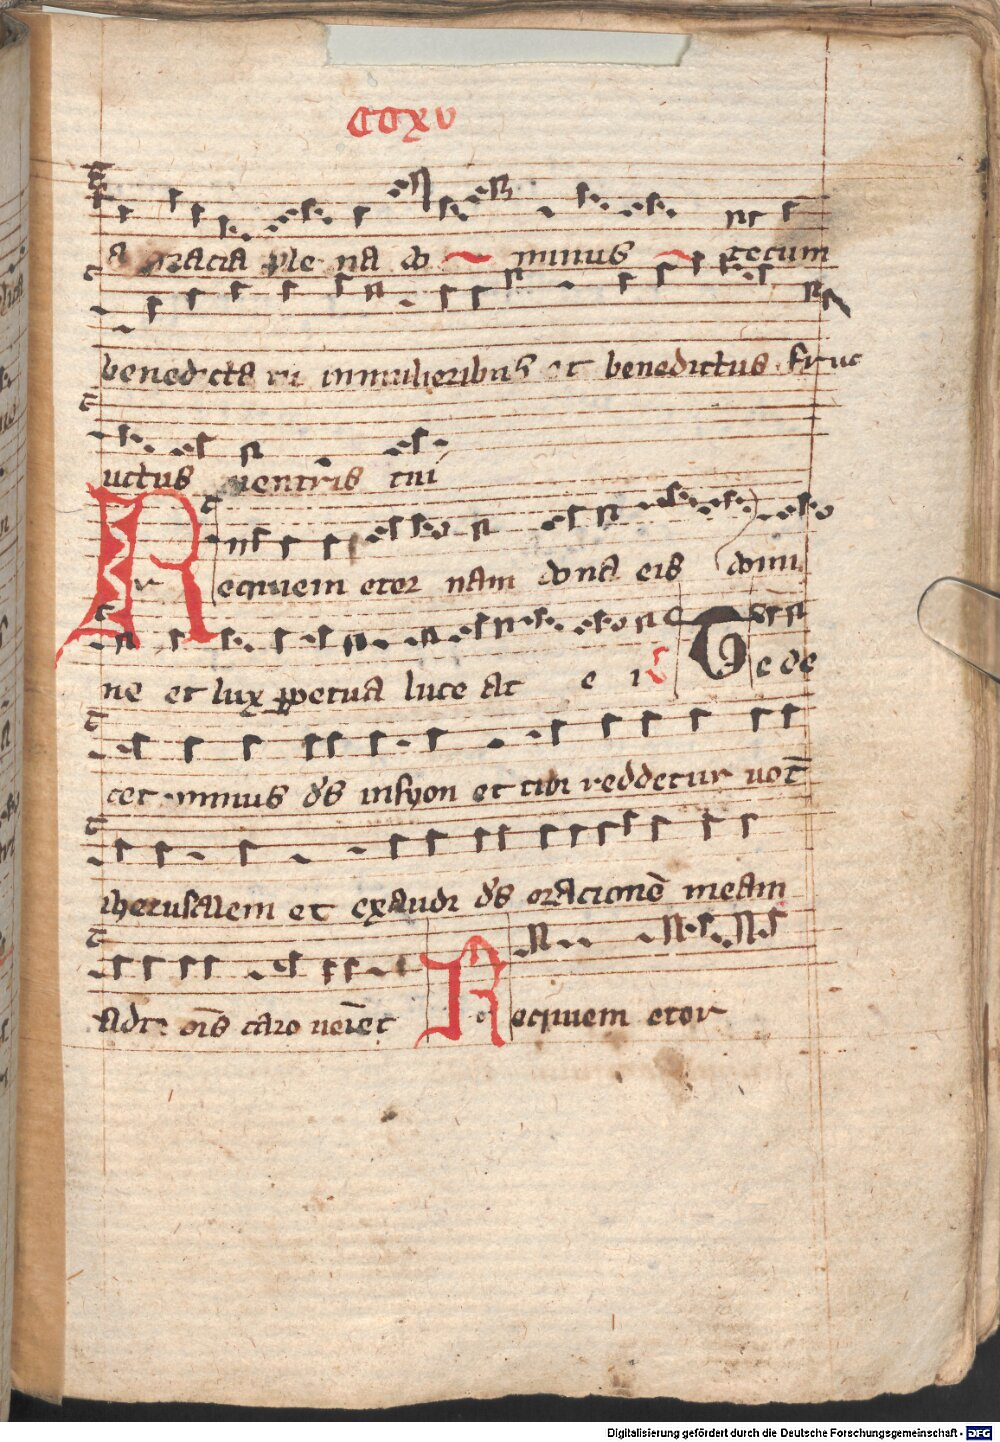 CCXV
a gracia ple na do minus tecum
benedicta tu in mulieribus et benedictus fruc
uctus uentris tui
Requiem eter nam dona eis domi
ne et lux ꝑpetua luce at e is Te de
cet ẏminus ds̄ in syon et tibi reddetur uot̄
iherusalem et exaudi ds̄ oracionē meam
ad te oīs caro ueīet Requiem eter
Digitalisierung gefördert durch die Deutsche Forschungsgemeinschaft - DFG